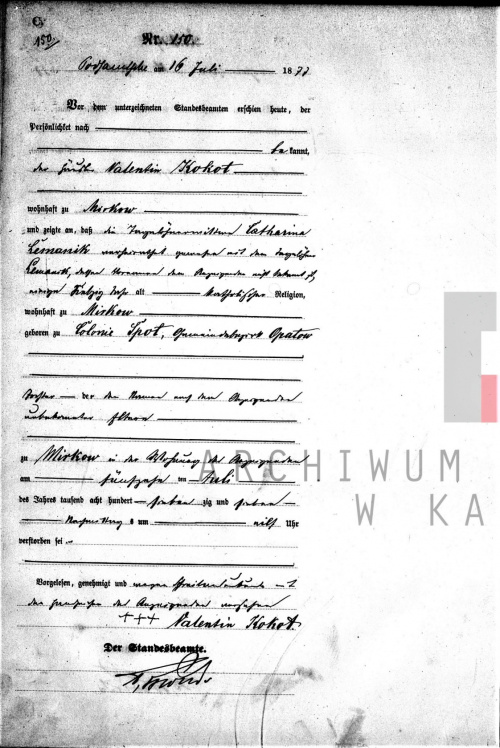 150.
Nr. 150.
Podsamtsche am 16 Juli 1877
Vor dem unterzeichneten Standesbeamten erschien heute, der
Persönlichkeit nach
bekannt,
der Häusler Valentin Kokot
wohnhaft zu Mirkow
und zeigte an, daß die Tagelöhnerwittwe Catharina
Lemanik verheirathet gewesen mit dem Tagelöhner
Lemanik, dessen Vornamen dem Anzeigenden nicht bekannt ist,
einige siebzig Jahr alt katholischer Religion,
wohnhaft zu Mirkow
geboren zu Colonie Spot, Gemeindebezirk Opatow
Tochter der dem Namen nach dem Anzeigenden
unbekannten Eltern
zu Mirkow in der Wohnung des Anzeigenden
am fünfzehn ten Juli
des Jahres tausend acht hundert sieben zig und sieben
Nachmittag s um eilf Uhr
verstorben sei.
Vorgelesen, genehmigt und wegen Schreibensunkunde mit
den Handzeichen des Anzeigenden versehen
+++ Valentin Kokot.
Der Standesbeamte.
ARCHIWUM
W KA